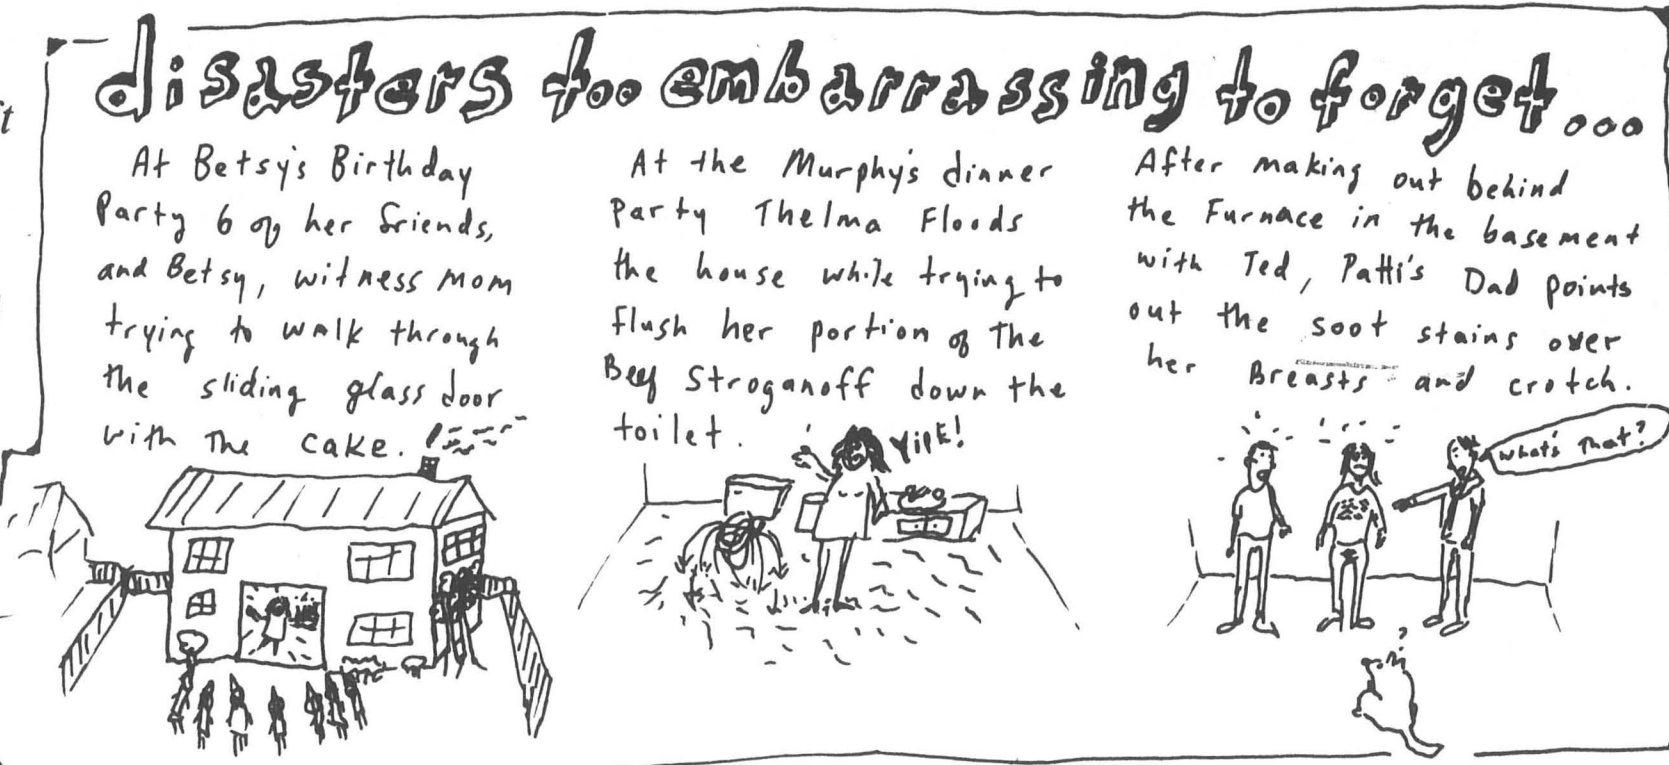 disasters too embarrassing to forget...
At Betsy's Birthday
Party 6 of her friends,
and Betsy, witness mom
trying to walk through
the sliding glass door
with The cake.
At the Murphy's dinner
party Thelma Floods
the house while trying to
flush her portion of The
Beef Stroganoff down the
toilet.
YIPE!
After making out behind
the Furnace in the basement
with Ted, Patti's Dad points
out the soot stains over
her Breasts and crotch.
What's That?
?
t